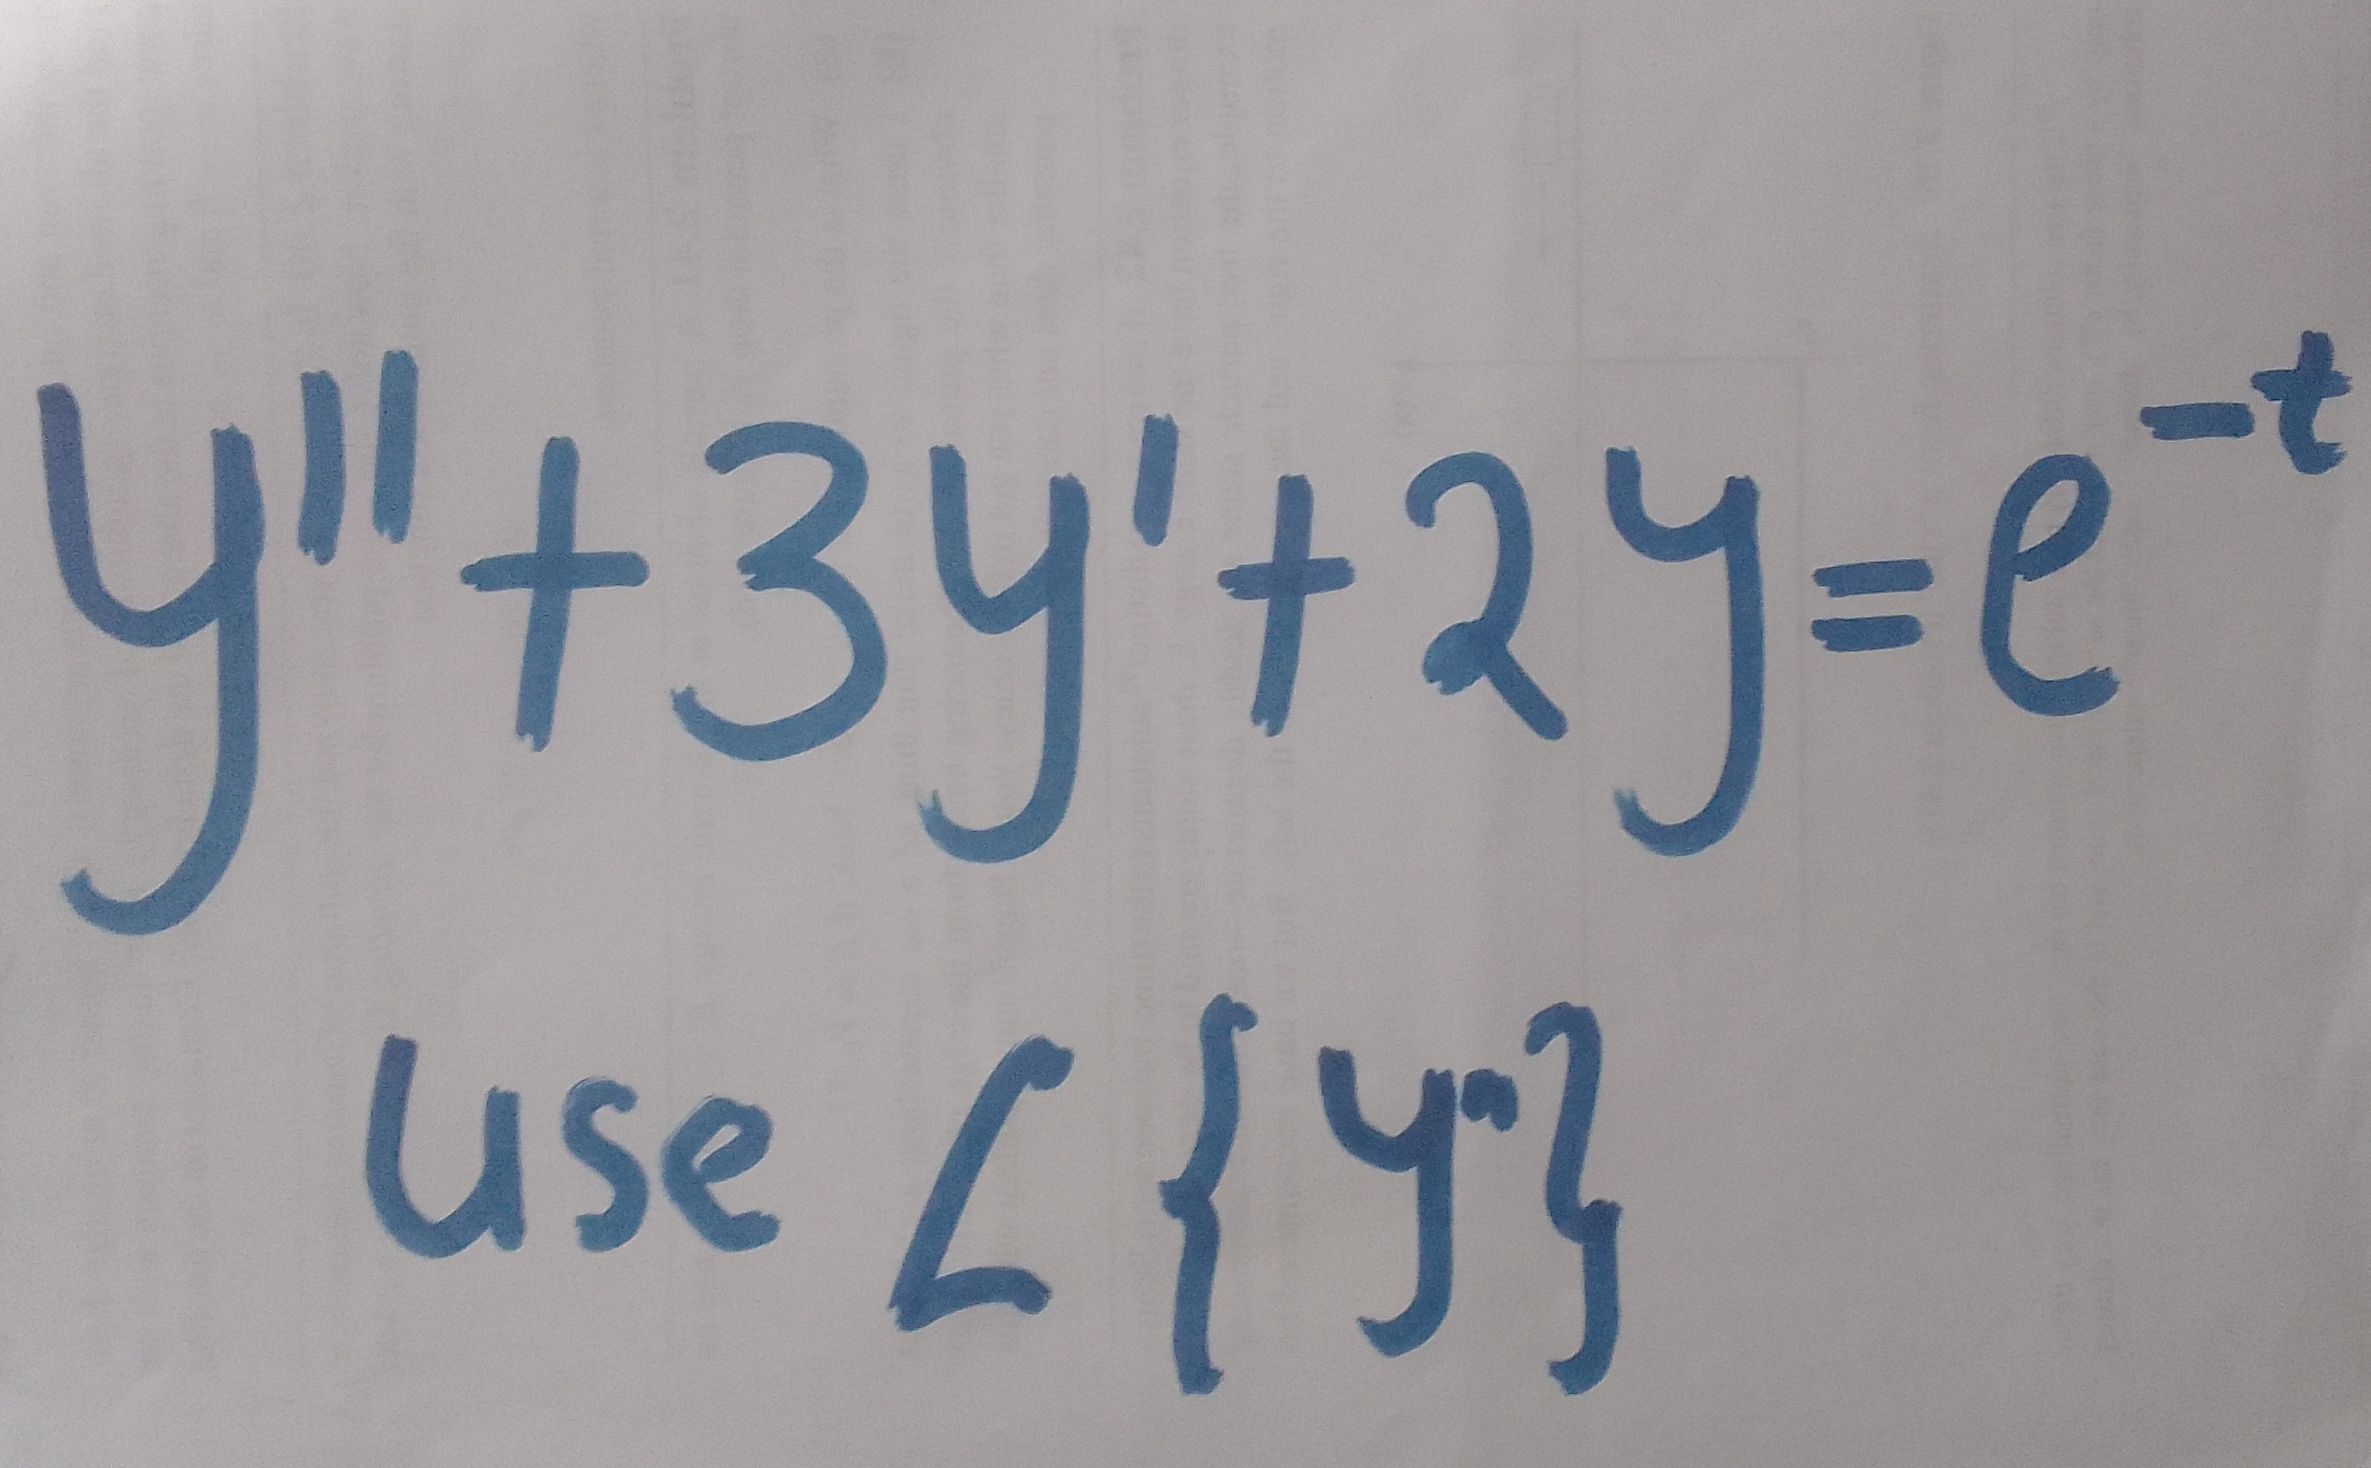 y''+3y'+2y=e^{-t}
use L{y^n}